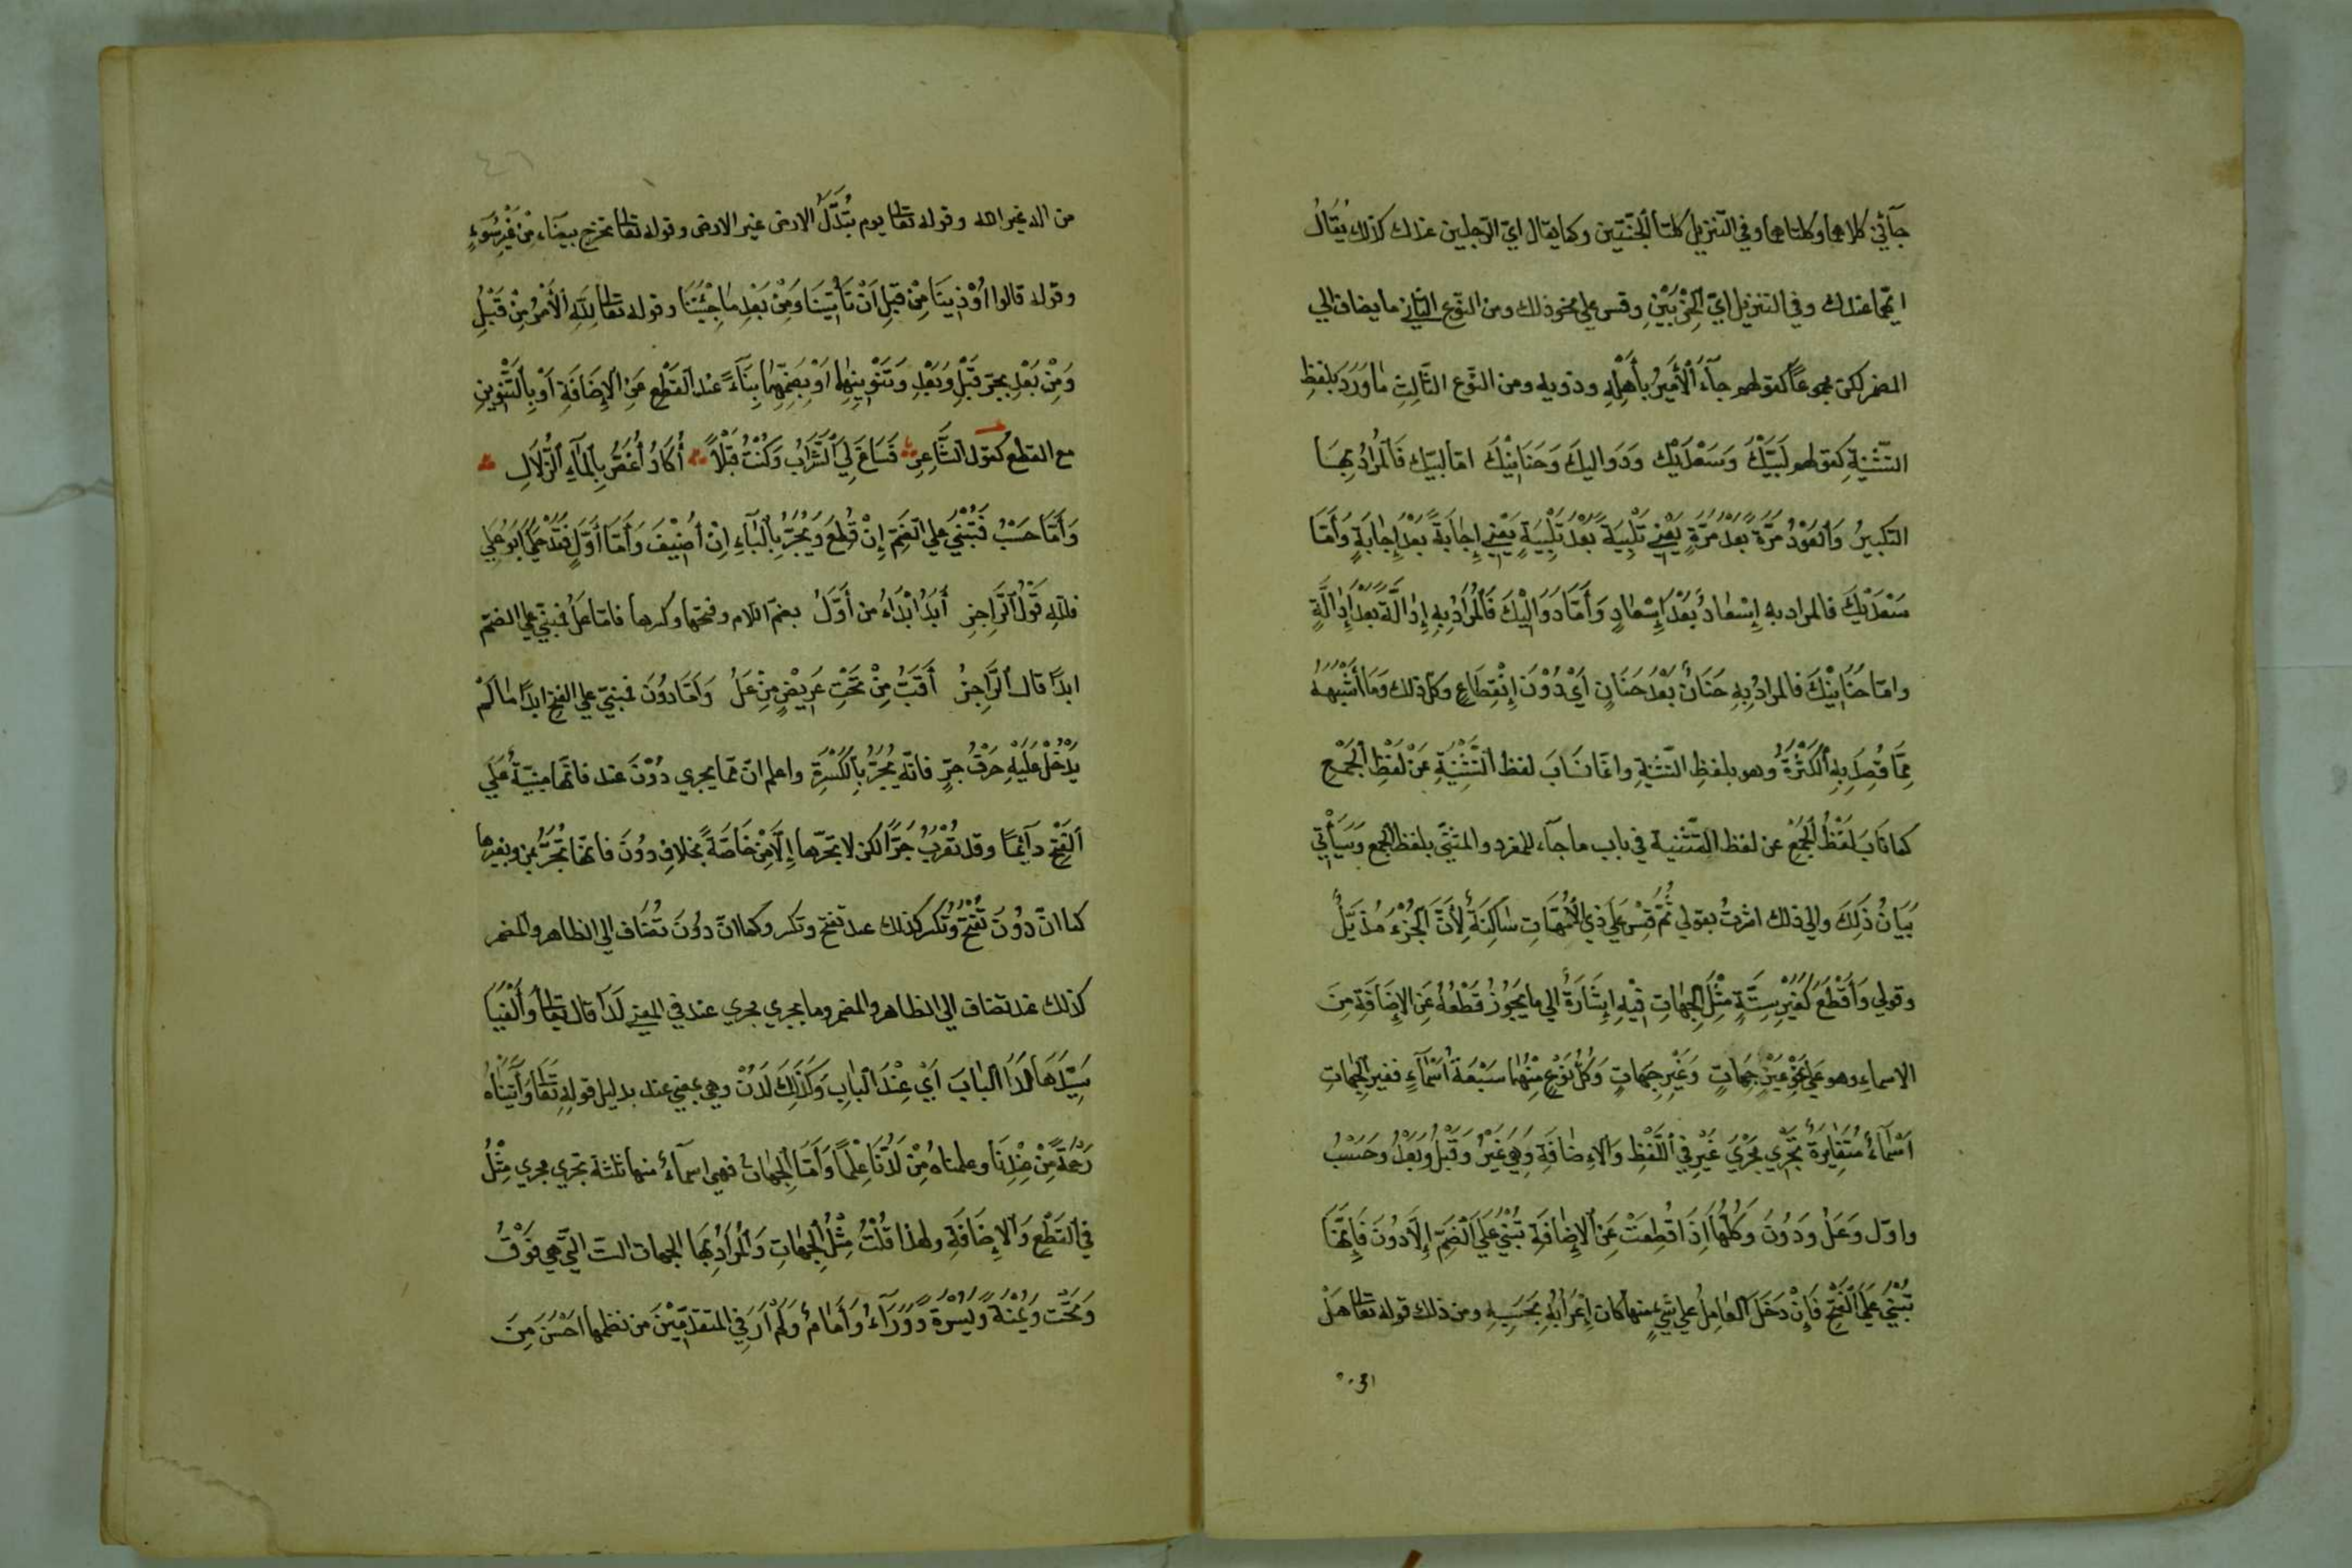 جآئني كلاهما وكلتاهما وفي التنزيل كلتا ٱلجنّتين وكما يقال ايّ الرّجلين عندك كذلك يُقَالُ
ايّهما عندك وفي التنزيل ايّ الحِزْبَيْنِ وقس علي نحو ذلك ومن النّوع الثاني ما يضاف الي
المضمر لكن مجموعاً كقولهم جآءَ ٱلْأَمِيرُ بأَهْلِهِ وذويه ومن النّوع الثَّالِثِ مٰا وَرَدَ بلفظِ
التَّثْنِيَةِ كقولهم لَبَّيْكَ وَسَعْدَيْكَ وَدَوَاليكَ وَحَنَانَيْكَ امّا لبّيك فَالمُرَادُ بِهَا
التّكبيرُ وَٱلعَوْدُ مَرَّةً بَعْدَ مَرَّةٍ يَعْنِي تَلْبِيَةً بَعْدَ تَلْبِيَةٍ يَعْنِي إِجٰابَةً بَعْدَ إِجٰابَةٍ وَأَمَّا
سَعْدَيْكَ فالمراد به إِسْعٰادٌ بَعْدَ إِسْعٰادٍ وَأَمَّا دَوَالَيْكَ فَٱلْمُرَادُ بِهِ إِدٰالَةً بَعْدَ إِدٰالَةٍ
وامّا حَنَانَيْكَ فالمرادُ بِهِ حَنَانٌ بَعْدَ حَنَانٍ أَيْ دُوْنَ إِنْقِطَاعٍ وكل ذلك وَمَا أَشْبَهَهُ
مِمَّا قُصِدَ بِهِ ٱلْكَثْرَةُ وهو بلفظِ التّثنيةِ وانّما نَابَ لفظ التَّثْنِيَةِ عَنْ لَفْظِ ٱلْجَمْعِ
كما نَابَ لَفْظُ ٱلْجَمْعِ عن لفظ التّثنية في باب ما جآء للمفرد والمثنّي بلفظ الجمع وَسَيَأْتِي
بَيَانُ ذَلِكَ والي ذلك اشرتُ بقولي ثُمَّ قِسْ عَلَي ذِي الْأُمَّهَاتِ سَاكِنَةً لِأَنَّ ٱلْجُزْءَ مُذَيَّلٌ
وقولي وَٱقْطَعْ لَغَيْرِ سِتَّةٍ مِثْلَ الجِهٰاتِ فِيْهِ إِشَارَةٌ الي ما يَجُوْزُ قَطْعُهُ عَنِ الإِضَافَةِ مِنَ
الاسماءِ وهو عَلي نَوْعَيْنِ جِهٰاتٍ وَغَيْرِ جِهَاتٍ وَكُلُّ نَوْعٍ مِنْهُمٰا سَبْعَةُ أَسْمَآءٍ فغير الجِهٰاتِ
اَسْمَآءٌ مُتَغٰايِرَةٌ تَجْرِي مَجْرَيَ غَيْرٍ فِي ٱللَّفْظِ وَالاِضٰافَةِ وَهِيَ غَيْرُ وَقَبْلُ وَبَعْدُ وحَسْبُ
واوّل وَعَلُ وَدُونَ وَكُلُّهَا اِذَا قُطِعَتْ عَنِ ٱلإِضٰافَةِ تُبْنَيٰ عَلَي ٱلضَّمِّ إِلَّا دُونَ فَإِنَّهَا
تُبْنَيٰ عَلَي ٱلْفَتْحِ فَإِنْ دَخَلَ العٰامِلُ علي شَيْءٍ منها كان إِعْرَابُهُ بِحَسَبِهِ ومن ذلك قوله تعالي هَلْ
من اله غير الله وقوله تعالي يوم تُبَدَّلُ الارض غير الارض وقوله تعالي تخرج بيضآء مِنْ غَيْرِ سُوْءٍ
وقوله قالوا اُوْذِينَا مِنْ قبلِ اَنْ تَأْتِيَنَا وَمِنْ بَعْدِ مٰا جِئْتَنَا وقوله تعالي لِلّهِ ٱلْأَمْرُ مِنْ قَبْلِ
وَمِنْ بَعْدِ بجرّ قَبْلِ وَبَعْدِ وَتَنْوِينِهِمٰا اَوْ بِضَمِّهِمٰا بِنَآءً عند القَطْعِ عَنِ الإِضَافَةِ أَوْ بِٱلتَّنْوِينِ
مع القطع كَقَوْلِ ٱلشَّاعِرِ فَسَاغَ لِيَ ٱلشَّرَابُ وَكُنْتُ قَبْلاً أَكَادُ أَغَصُّ بِٱلْمَآءِ ٱلزُّلَالِ
وَأَمَّا حَسْبُ فَتُبْنَيٰ عَلي الضَّمِّ إِنْ قُطِعَ وَيُجَرُّ بِٱلْبَآءِ اِنْ أُضِيْفَ وَأَمّا أَوَّلٍ فَقَدْ حَكَيٰ اَبُو عَلِي
فللّهِ قَوْلُ ٱلرَّاجِزِ أَبَدْ اِبْدَاءُ من أَوَّلُ بضمّ اللام وفتحها وكسرها فامّا عَلُ فمبنيّ علي الضمّ
ابدًا قال ٱلرَّاجِزُ أَقَبُّ مِنْ تَحْتِ عَرِيْضٌ مِنْ عَلُ وَأَمَّا دُوْنَ فمبنيّ علي الفتح ابدًا مٰا لَمْ
يَدْخُلْ عَلَيْهِ حَرْفُ جَرٍّ فانّه يُجَرُّ بِالْكَسْرَةِ واعلم انّ ممّا يجري دُوْنَ عند فانّها مبنيّةٌ عَلَي
الفَتْحِ دآئِماً وقد تُعْرَبُ جَرًّا لكن لا يجرّها إِلَّا مِنْ خَاصَّةً بخلافِ دوُنَ فانّها تُجَرُّ بمن وبغيرها
كما انّ دوُنَ تُفْتَحُ وَتُكسَر كذلك عند تفتح وتكسر وكما انّ دوُنَ تُضَاف الي الظاهر والمضمر
كذلك عند تضاف الي الظاهر والمضمر وما يجري مجري عند في المعني لَدَا قال تعالي وَأَلْفَيَا
سَيِّدَهَا لَدَا ٱلْبَابَ اَيْ عِنْدَ البابِ وَكَذَلِكَ لَدُنْ وهي بمعني عند بدليل قولِهِ تعالي وَآتَيْنَاهُ
رَحْمَةً مِنْ عِنْدِنَا وعلمناهُ مِنْ لَدُنَّا عِلْمًا وَأَمَّا الْجِهٰاتُ فهي اسمآءٌ منها ثلثة تجري مجري مِثْلُ
في القَطْعِ وَالإِضَافَةِ ولهذا قُلْتُ مِثْلَ الجِهٰاتِ وَالمُرَادُ بِهَا الجهات الستّ الّتي هي فَوْقُ
وَتَحْت وَيَمْنَةً وَيَسْرَةً وَوَرَآءُ وَأَمَامُ وَلَمْ أَرَ فِي المتقدِّمِيْنَ من نظمها اَحْسَنَ مِنَ